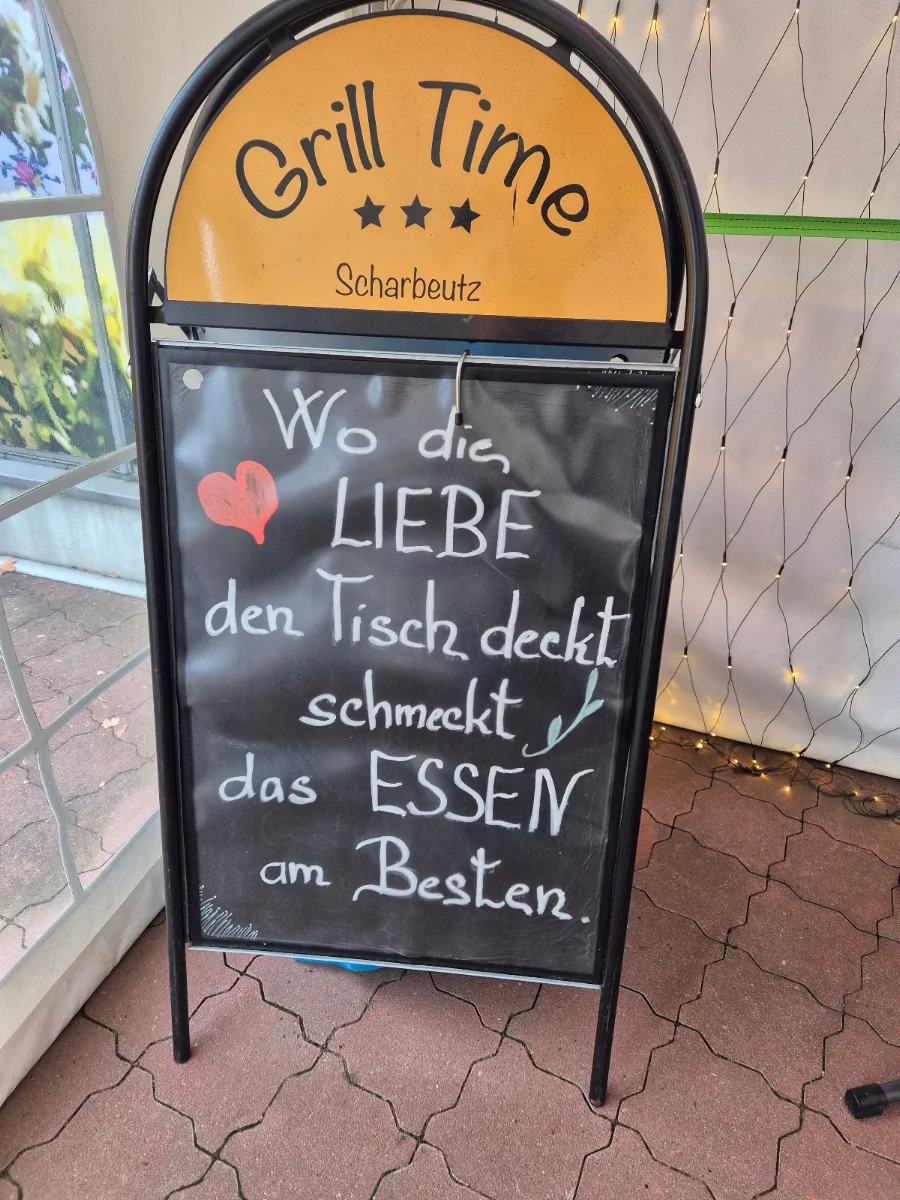 Grill Time
Scharbeutz
Wo die
LIEBE
den Tisch deckt
schmeckt
das ESSEN
am Besten.